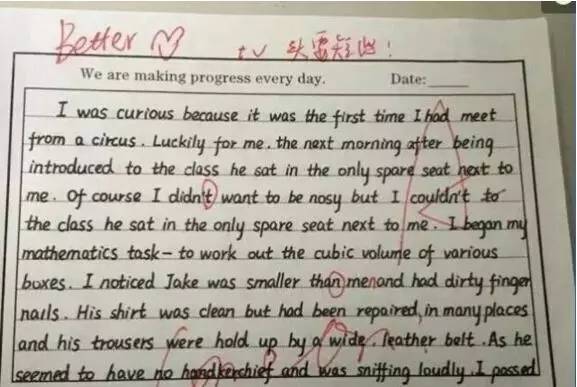 Better
tv 头要短些!
We are making progress every day. Date:
I was curious because it was the first time I had meet
from a circus. Luckily for me. the next morning after being
introduced to the class he sat in the only spare seat next to
me. Of course I didn't want to be nosy but I couldn't to
the class he sat in the only spare seat next to me. I began my
mathematics task- to work out the cubic volume of various
boxes. I noticed Jake was smaller than men and had dirty finger
nails. His shirt was clean but had been repaired, in many places
and his trousers were hold up by a wide, leather belt. As he
seemed to have no handkerchief and was sniffing loudly. I passed